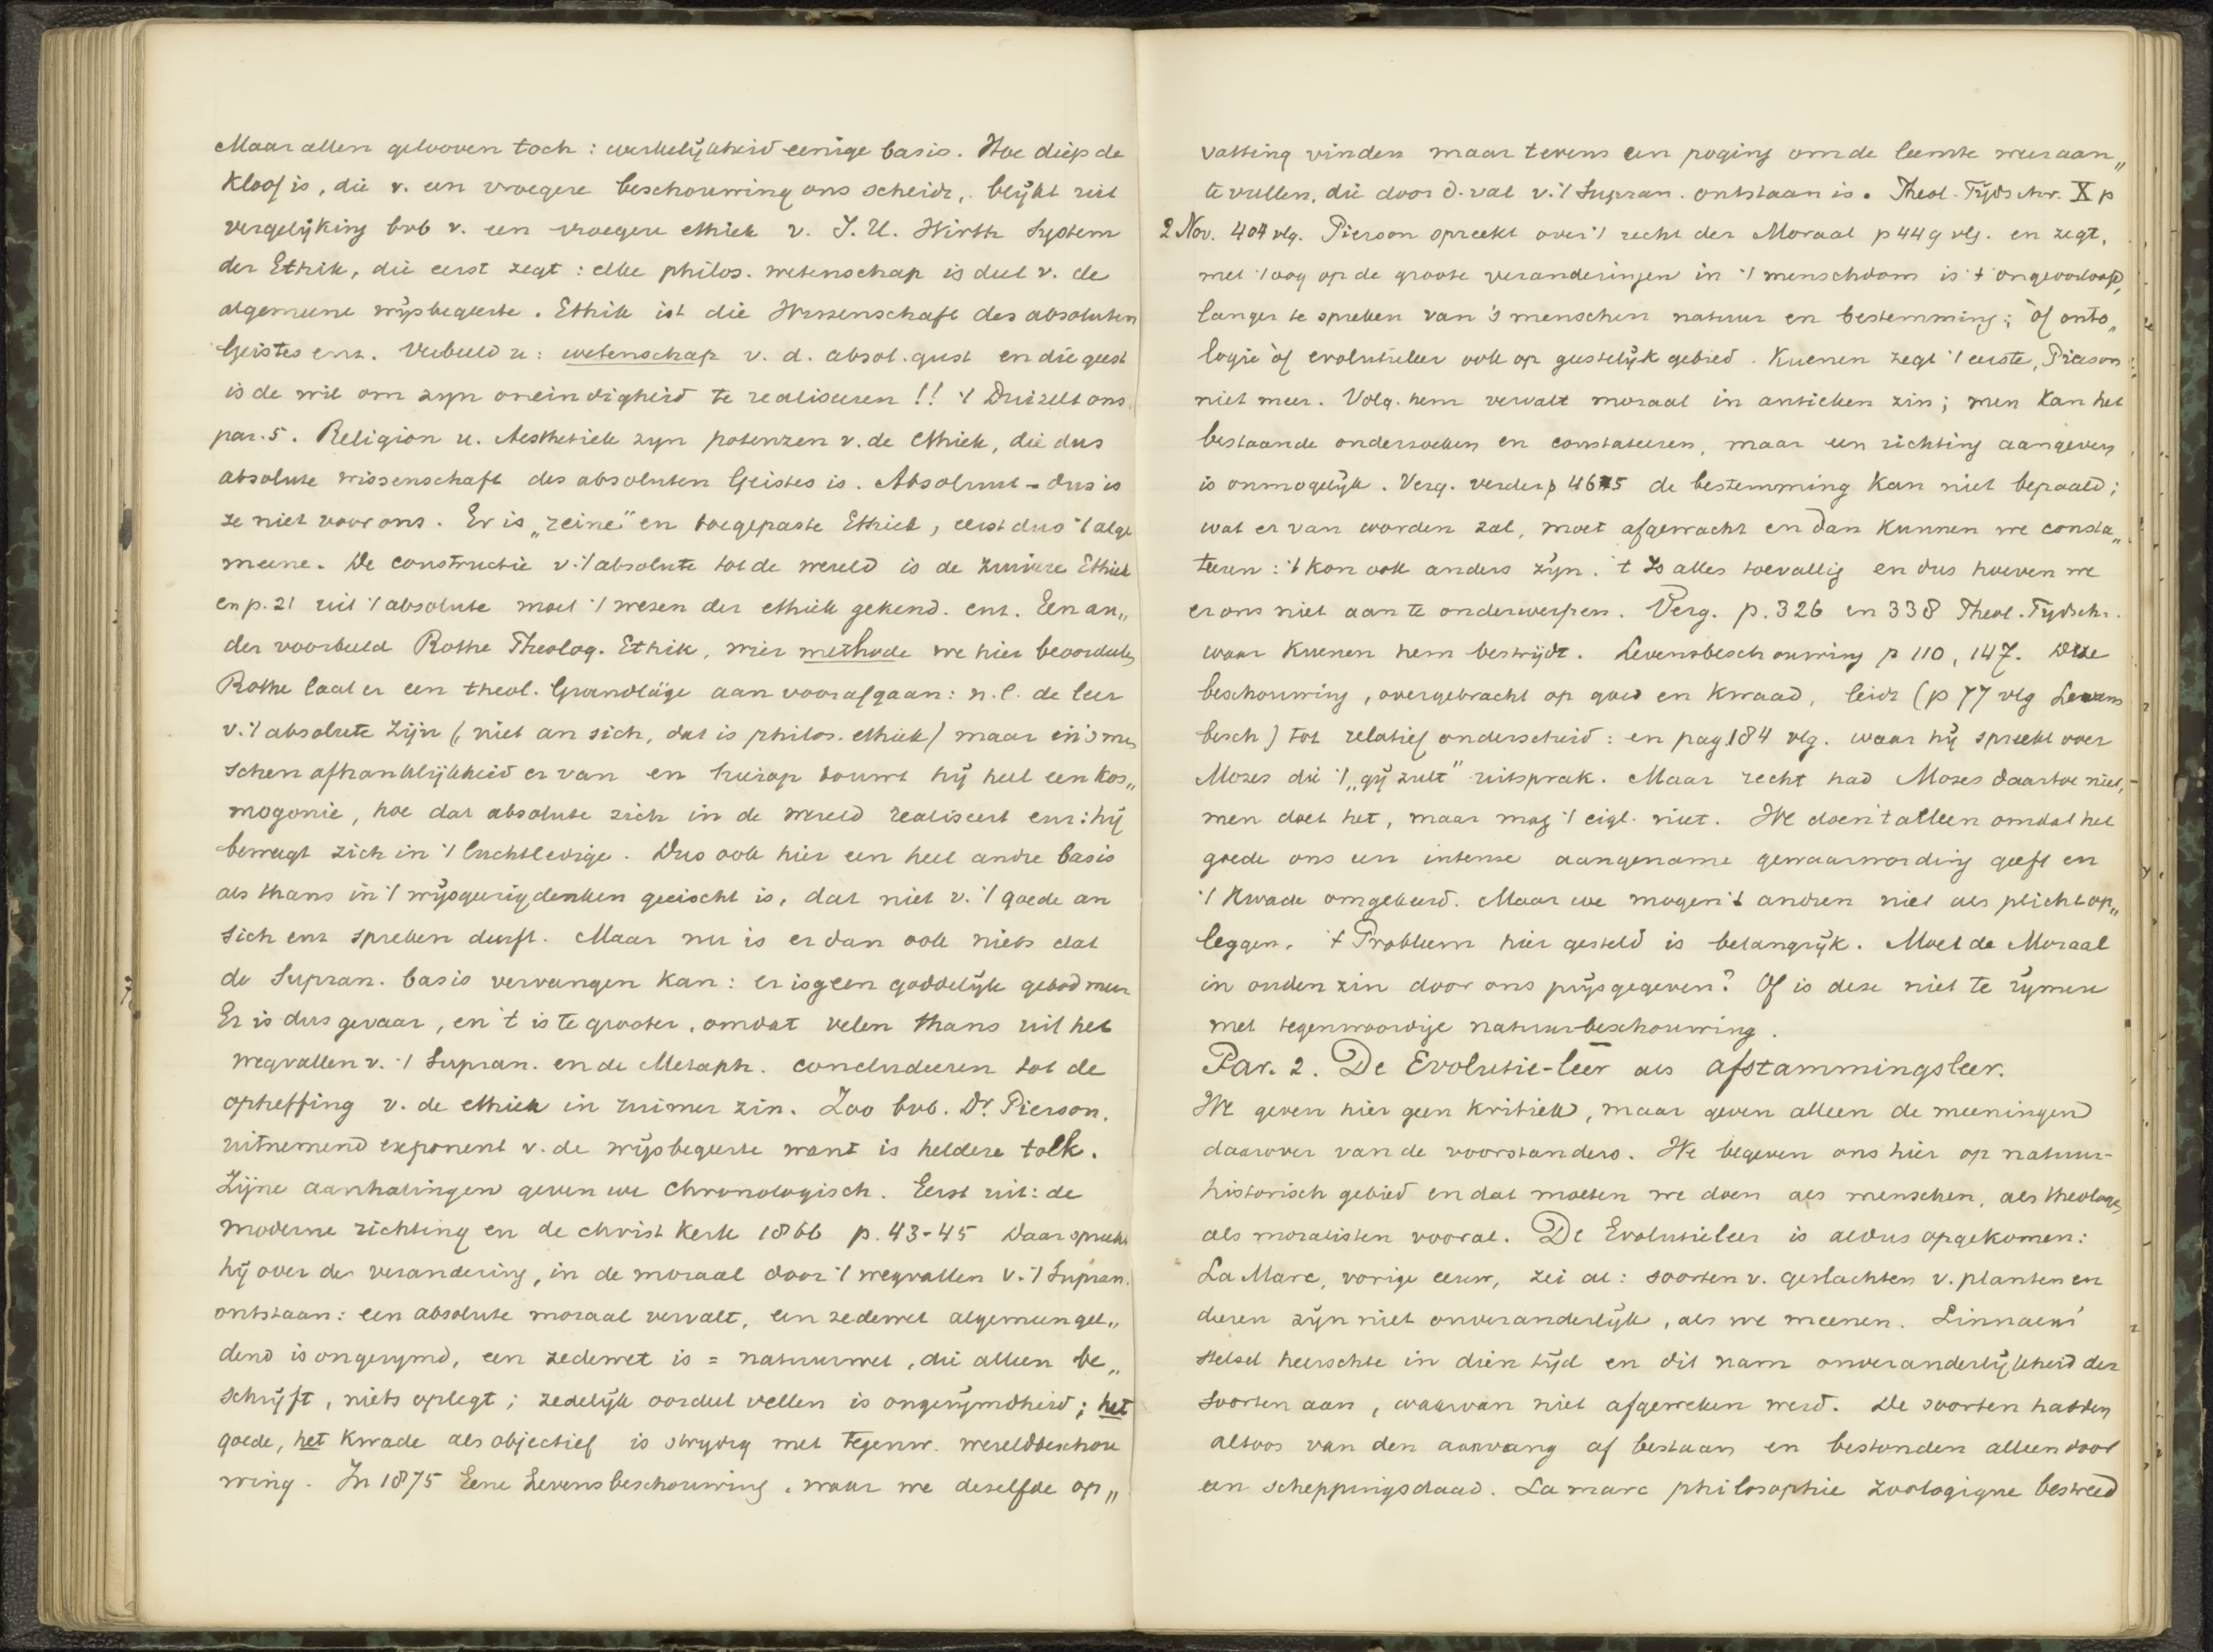 Maar allen gelooven toch : werkelijkheid eenige basis. Hoe diep de
Kloof is, die v. een vroegere beschouwing ons scheidt, blijkt uit
vergelijking bvb v. een vroegere ethiek v. J. U. Wirth System
der Ethik, die eerst zegt : elke philos. wetenschap is deel v. de
algemeene wijsbegeerte. Ethik ist die Wissenschaft des absoluten
Geistes enz. Verbeeld u : wetenschap v. d. absol. geest en die geest
is de wil om zyn oneindigheid te realiseeren !! 't Duizelt ons.
par. 5. Religion u. Aesthetiek zyn potenzen v. de Ethiek, die dus
absolute wissenschaft des absoluten Geistes is. Absoluut - dus is
ze niet voor ons. Er is „reine" en toegepaste Ethiek, eerst dus 't alge
meene. De constructie v. 't absolute tot de wereld is de zuivere Ethiek
en p. 21 uit 't absolute moet 't wezen der ethiek gekend. enz. Een an„
der voorbeeld Rothe Theolog. Ethik, wier methode we hier beoordeelen
Rothe laat er een theol. Grundläge aan voorafgaan: n.l. de leer
v. 't absolute zijn (niet an sich, dat is philos. ethiek) maar in 's men
schen afhanklijkheid er van en hierop bouwt hij heel een kos„
mogonie, hoe dat absolute zich in de wereld realiseert enz: hij
beweegt zich in 't luchtledige. Dus ook hier een heel andre basis
als thans in 't wijsgeerig denken geeischt is, dat niet v. 't goede an
sich enz spreken durft. Maar nu is er dan ook niets dat
de Supran. basis vervangen kan : er is geen goddelijk gebod meer
Er is dus gevaar, en 't is te grooter, omdat velen thans uit het
wegvallen v. 't Supran. en de Metaph. concludeeren tot de
opheffing v. de ethiek in ruimer zin. Zoo bvb. Dr Pierson.
uitnemend exponent v. de wijsbegeerte want is heldere tolk.
Zijne aanhalingen geven we chronologisch. Eerst uit: de
moderne richting en de christ Kerk 1866 p. 43-45 Daar spreekt
hij over de verandering, in de moraal door 't wegvallen v. 't Supran.
ontstaan : een absolute moraal vervalt, een zedewet algemeen gel„
dend is ongerymd, een zedewet is = natuurwet, die alleen be„
schrijft, niets oplegt ; zedelijk oordeel vellen is ongerijmdheid ; het
goede, het kwade als objectief is strydig met tegenw. wereldbeschou
wing. In 1875 Eene Levensbeschouwing, waar we dezelfde op„
vatting vinden maar tevens een poging om de leemte weer aan„
te vullen, die door d. val v. 't Supran. ontstaan is. Theol. Tijdschr. X p
2 Nov. 404 vlg. Pierson spreekt over 't recht der Moraal p 449 vlg. en zegt,
met 't oog op de groote veranderingen in 't menschdom is 't ongeoorloofd,
langer te spreken van 's menschen natuur en bestemming; òf onto„
logie òf evolutieleer ook op geestelijk gebied. Kuenen zegt 't eerste, Pierson
niet meer. Volg. hem vervalt moraal in antieken zin ; men kan het
bestaande onderzoeken en constateeren, maar een richting aangeven
is onmogelijk. Verg. verder p 465 de bestemming kan niet bepaald ;
wat er van worden zal, moet afgewacht en dan kunnen we consta„
teeren : 't kon ook anders zijn. 't Is alles toevallig en dus hoeven we
er ons niet aan te onderwerpen. Verg. p. 326 en 338 Theol. Tydschr.
waar Kuenen hem bestrijdt. Levensbeschouwing p 110, 147. Deze
beschouwing, overgebracht op goed en kwaad, leidt (p 77 vlg Levens
besch) tot relatief onderscheid : en pag 184 vlg. waar hij spreekt over
Mozes die 't „gij zult" uitsprak. Maar recht had Mozes daartoe niet,
men doet het, maar mag 't eigl. niet. We doen 't alleen omdat het
goede ons een intense aangename gewaarwording geeft en
't kwade omgekeerd. Maar we mogen 't andren niet als plicht op„
leggen. 't Probleem hier gesteld is belangrijk. Moet de Moraal
in ouden zin door ons prijsgegeven? Of is deze niet te rijmen
met tegenwoordige natuurbeschouwing.
Par. 2. De Evolutie-leer als afstammingsleer.
We geven hier geen kritiek, maar geven alleen de meeningen
daarover van de voorstanders. We begeven ons hier op natuur-
historisch gebied en dat moeten we doen als menschen, als theologen
als moralisten vooral. De Evolutieleer is aldus opgekomen :
La Marc, vorige eeuw, zei al : soorten v. geslachten v. planten en
dieren zijn niet onveranderlijk, als we meenen. Linnaeus'
stelsel heerschte in dien tijd en dit nam onveranderlijkheid der
soorten aan, waarvan niet afgeweken werd. De soorten hadden
altoos van den aanvang af bestaan en bestonden alleen door
een scheppingsdaad. La marc philosophie zoologique bestreed